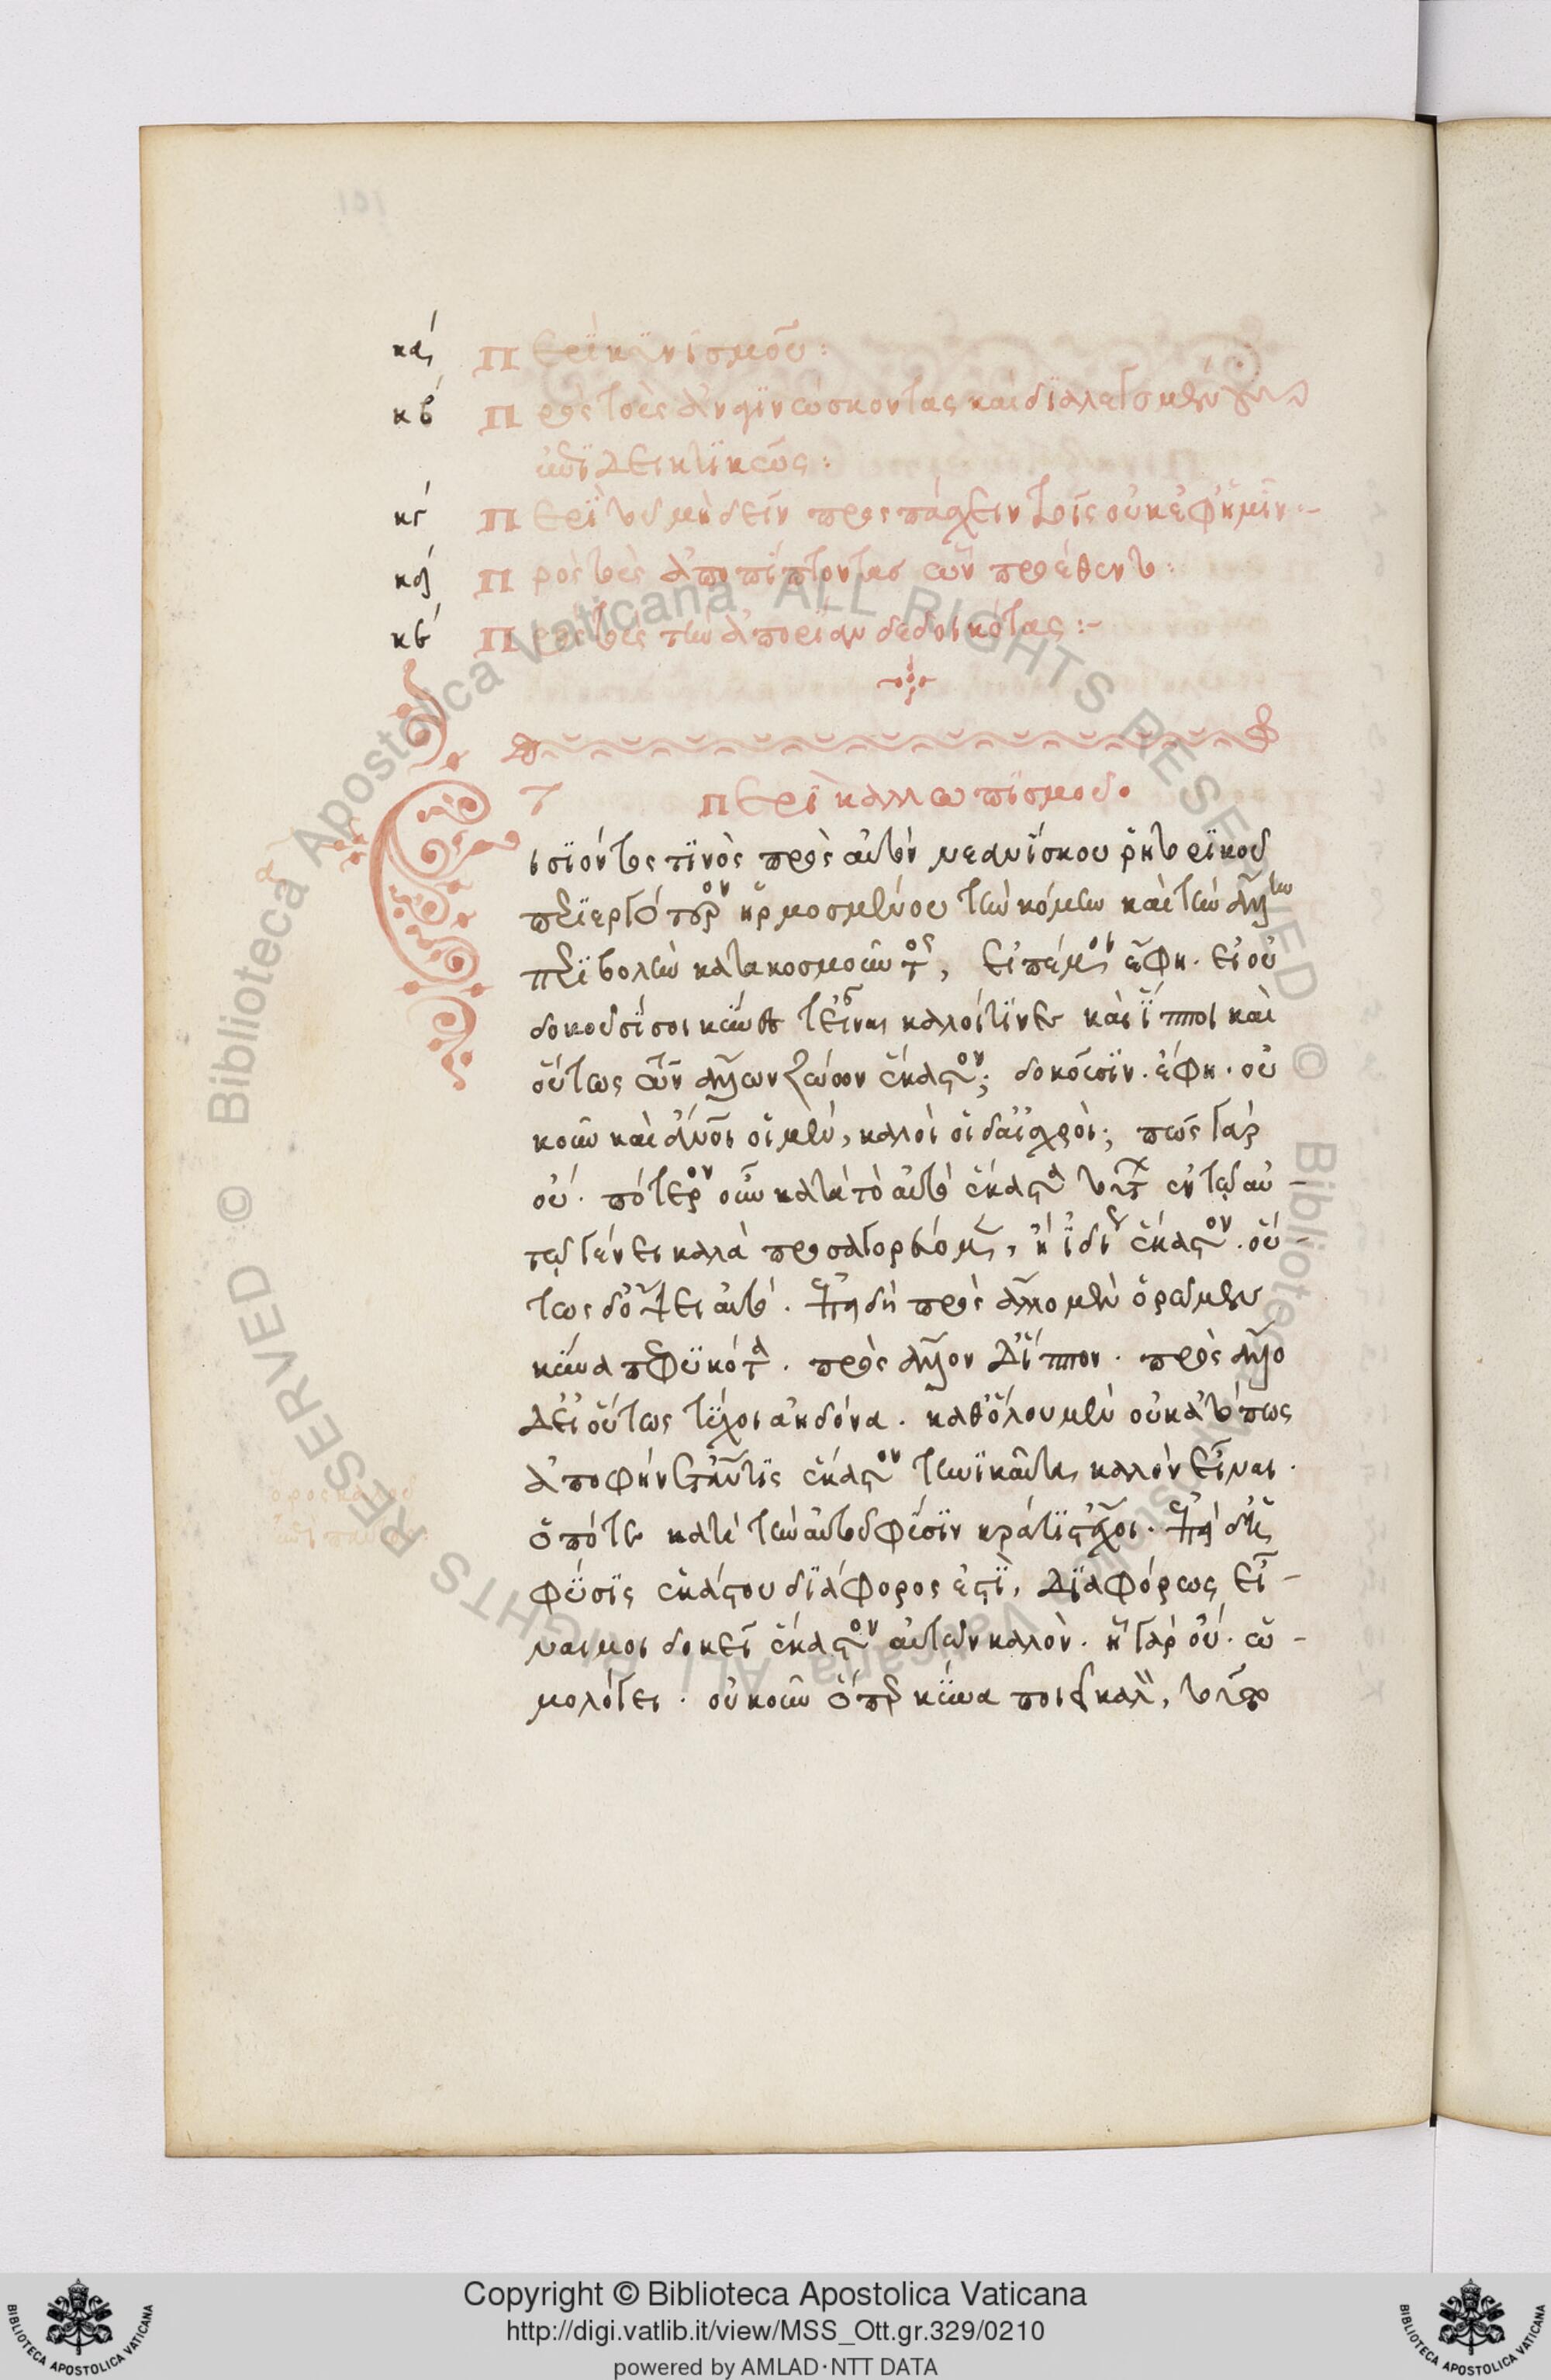 κα Περὶ κυνισμοῦ:
κβ Πρὸς τοὺς ἀναγινώσκοντας καὶ διαλεγομένους
ἐπιδεικτικῶς:
κγ Περὶ τοῦ μὴ δεῖν προσπάσχειν τοῖς οὐκ ἐφ' ἡμῖν:-
κδ Πρὸς τοὺς ἀποπίπτοντας ὧν προέθεντο:
κε Πρὸς τοὺς τὴν ἀπορίαν δεδοικότας:-
Περὶ καλλωπισμοῦ.
Εἰσιόντος τινὸς πρὸς αὐτὸν νεανίσκου ῥητορικοῦ
περιεργότερον ἡρμοσμένου τὴν κόμην καὶ τὴν ἄλλην
περιβολὴν κατακοσμοῦντος, εἰπέ μοι ἔφη. εἰ οὐ
δοκοῦσί σοι κύνες τ' εἶναι καλοί τινες καὶ ἵπποι καὶ
οὕτως τῶν ἄλλων ζώων ἕκαστον; δοκοῦσιν. ἔφη. οὐ
κοῦν καὶ ἄνθρωποι οἱ μὲν, καλοὶ οἱ δ' αἰσχροί; πῶς γὰρ
οὔ. πότερον οὖν κατὰ τὸ αὐτὸ ἕκαστα τούτων ἐν τῷ αὐ-
τῷ γένει καλὰ προσαγορεύομεν, ἢ ἰδίως ἕκαστον. οὕ-
τως δ' ὄψει αὐτό. ἐπειδὴ πρὸς ἄλλο μὲν ὁρῶμεν
κύνα πεφυκότα. πρὸς ἄλλον δ' ἵππον. πρὸς ἄλλο
δ' εἰ οὕτως τύχοι ἀηδόνα. καθόλου μὲν οὐκ ἀτόπως
ἀποφήναιτ' ἄν τις ἕκαστον τηνικαῦτα καλὸν εἶναι.
ὁπότε κατὰ τὴν αὐτοῦ φύσιν κράτιστ' ἔχοι. ἐπεὶ δ' ἡ
φύσις ἑκάστου διάφορός ἐστι, διαφόρως εἶ-
ναί μοι δοκεῖ ἕκαστον αὐτῶν καλόν. ἢ γὰρ οὔ. ὡ-
μολόγει. οὐκοῦν ὅπερ κύνα ποιεῖ καλὸν, τοῦτο
Copyright © Biblioteca Apostolica Vaticana
http://digi.vatlib.it/view/MSS_Ott.gr.329/0210
powered by AMLAD·NTT DATA